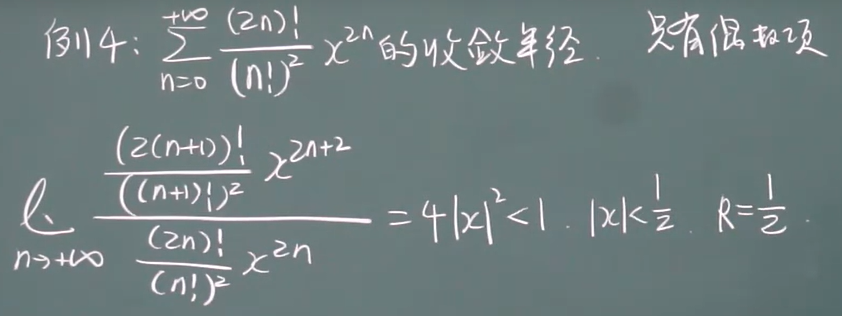 例4: $\sum_{n=0}^{+\infty} \frac{(2n)!}{(n!)^2} x^{2n}$ 的收敛半径. 只有偶数项
$\lim_{n \to +\infty} \frac{\frac{(2(n+1))!}{((n+1)!)^2} x^{2n+2}}{\frac{(2n)!}{(n!)^2} x^{2n}} = 4|x|^2 < 1. |x| < \frac{1}{2}. R = \frac{1}{2}.$